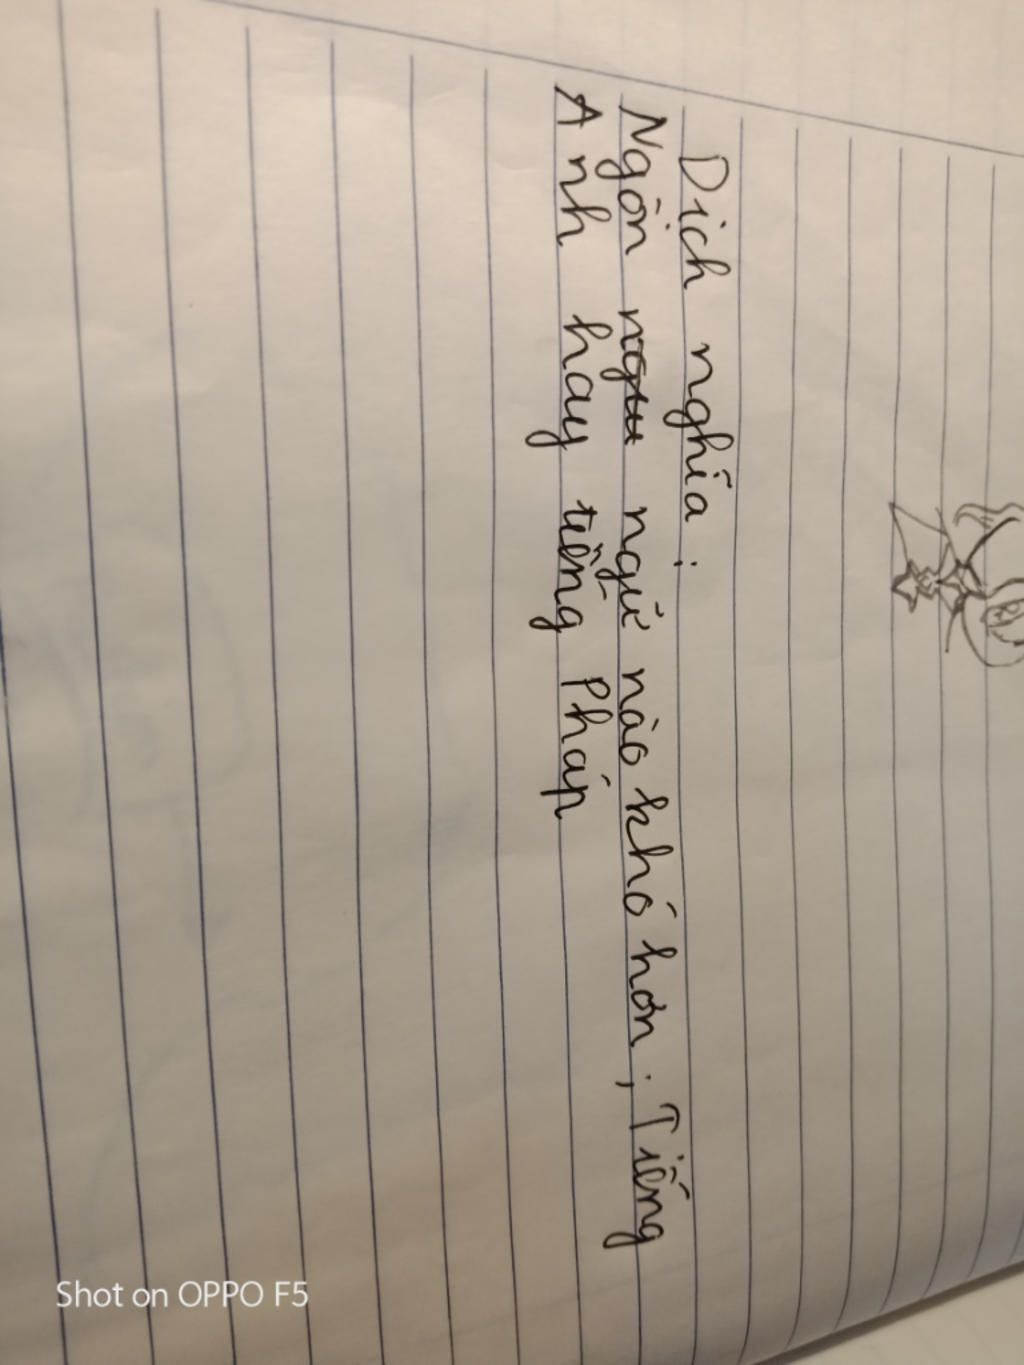 Dịch nghĩa :
Ngôn ngữ nào khó hơn ; Tiếng
Anh hay tiếng Pháp
Shot on OPPO F5